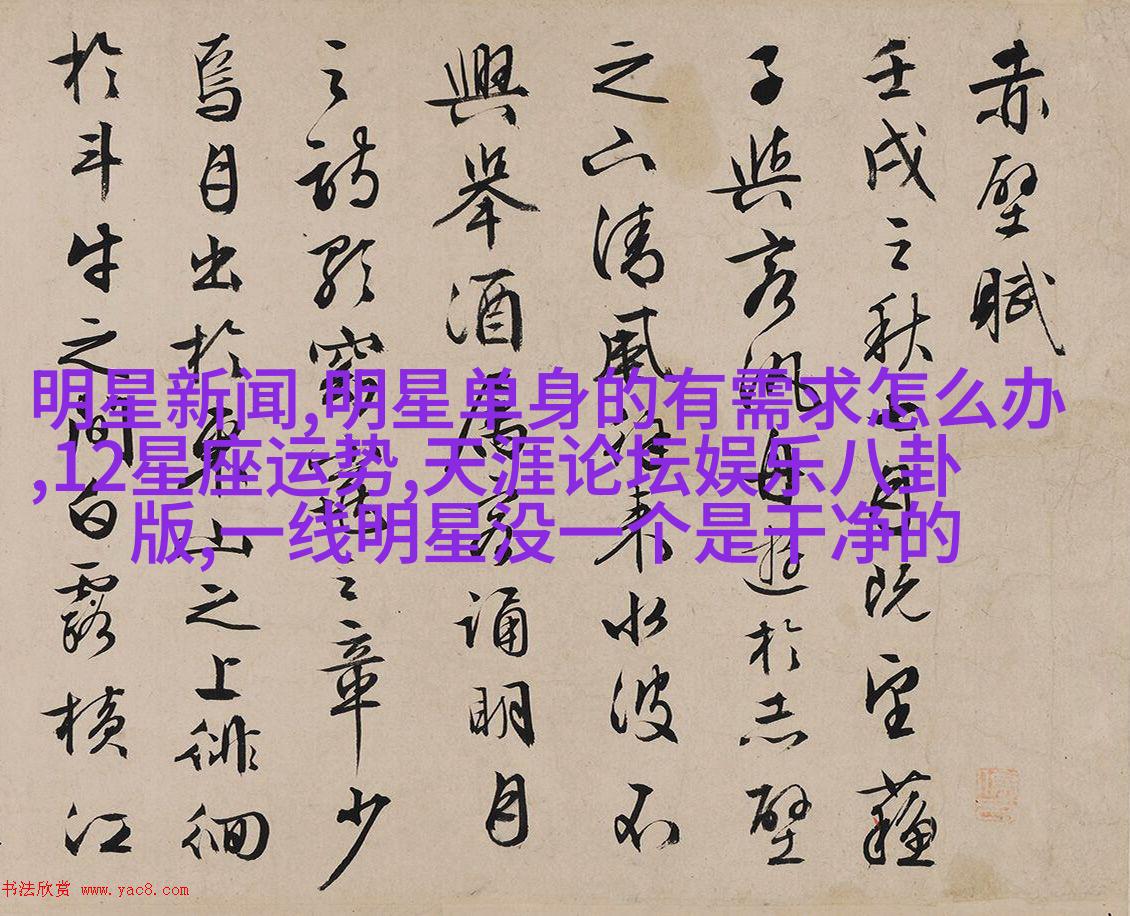 赤壁賦
壬戌之秋七月既望蘓
子與客汎舟遊於赤壁
之下清風徐來水波不
興舉酒屬客誦明月
之詩歌窈窕之章少
焉月出於東山之上徘徊
於斗牛之間白露橫江
明星新闻,明星单身的有需求怎么办
,12星座运势,天涯论坛娱乐八卦
版,一线明星没一个是干净的
书法欣赏 www.yac8.com